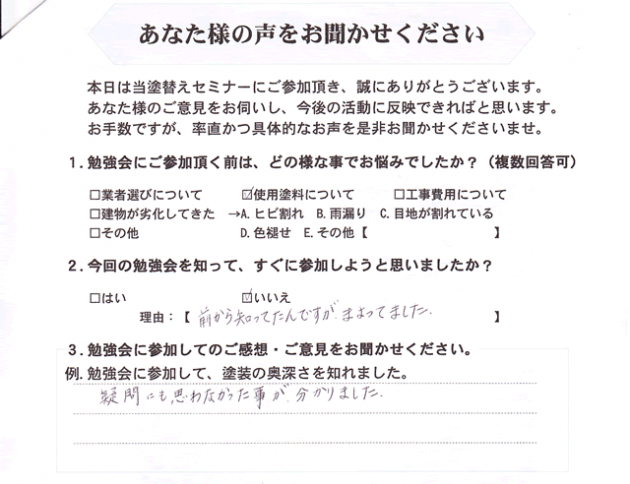 あなた様の声をお聞かせください
本日は当塗替えセミナーにご参加頂き、誠にありがとうございます。
あなた様のご意見をお伺いし、今後の活動に反映できればと思います。
お手数ですが、率直かつ具体的なお声を是非お聞かせくださいませ。
1.勉強会にご参加頂く前は、どの様な事でお悩みでしたか？（複数回答可）
□業者選びについて ☑使用塗料について □工事費用について
□建物が劣化してきた →A.ヒビ割れ B.雨漏り C.目地が割れている
□その他 D.色褪せ E.その他【 】
2.今回の勉強会を知って、すぐに参加しようと思いましたか？
□はい ☑いいえ
理由：【 前から知ってたんですが、まよってました. 】
3.勉強会に参加してのご感想・ご意見をお聞かせください。
例.勉強会に参加して、塗装の奥深さを知れました。
疑問にも思わなかった事が、分かりました.